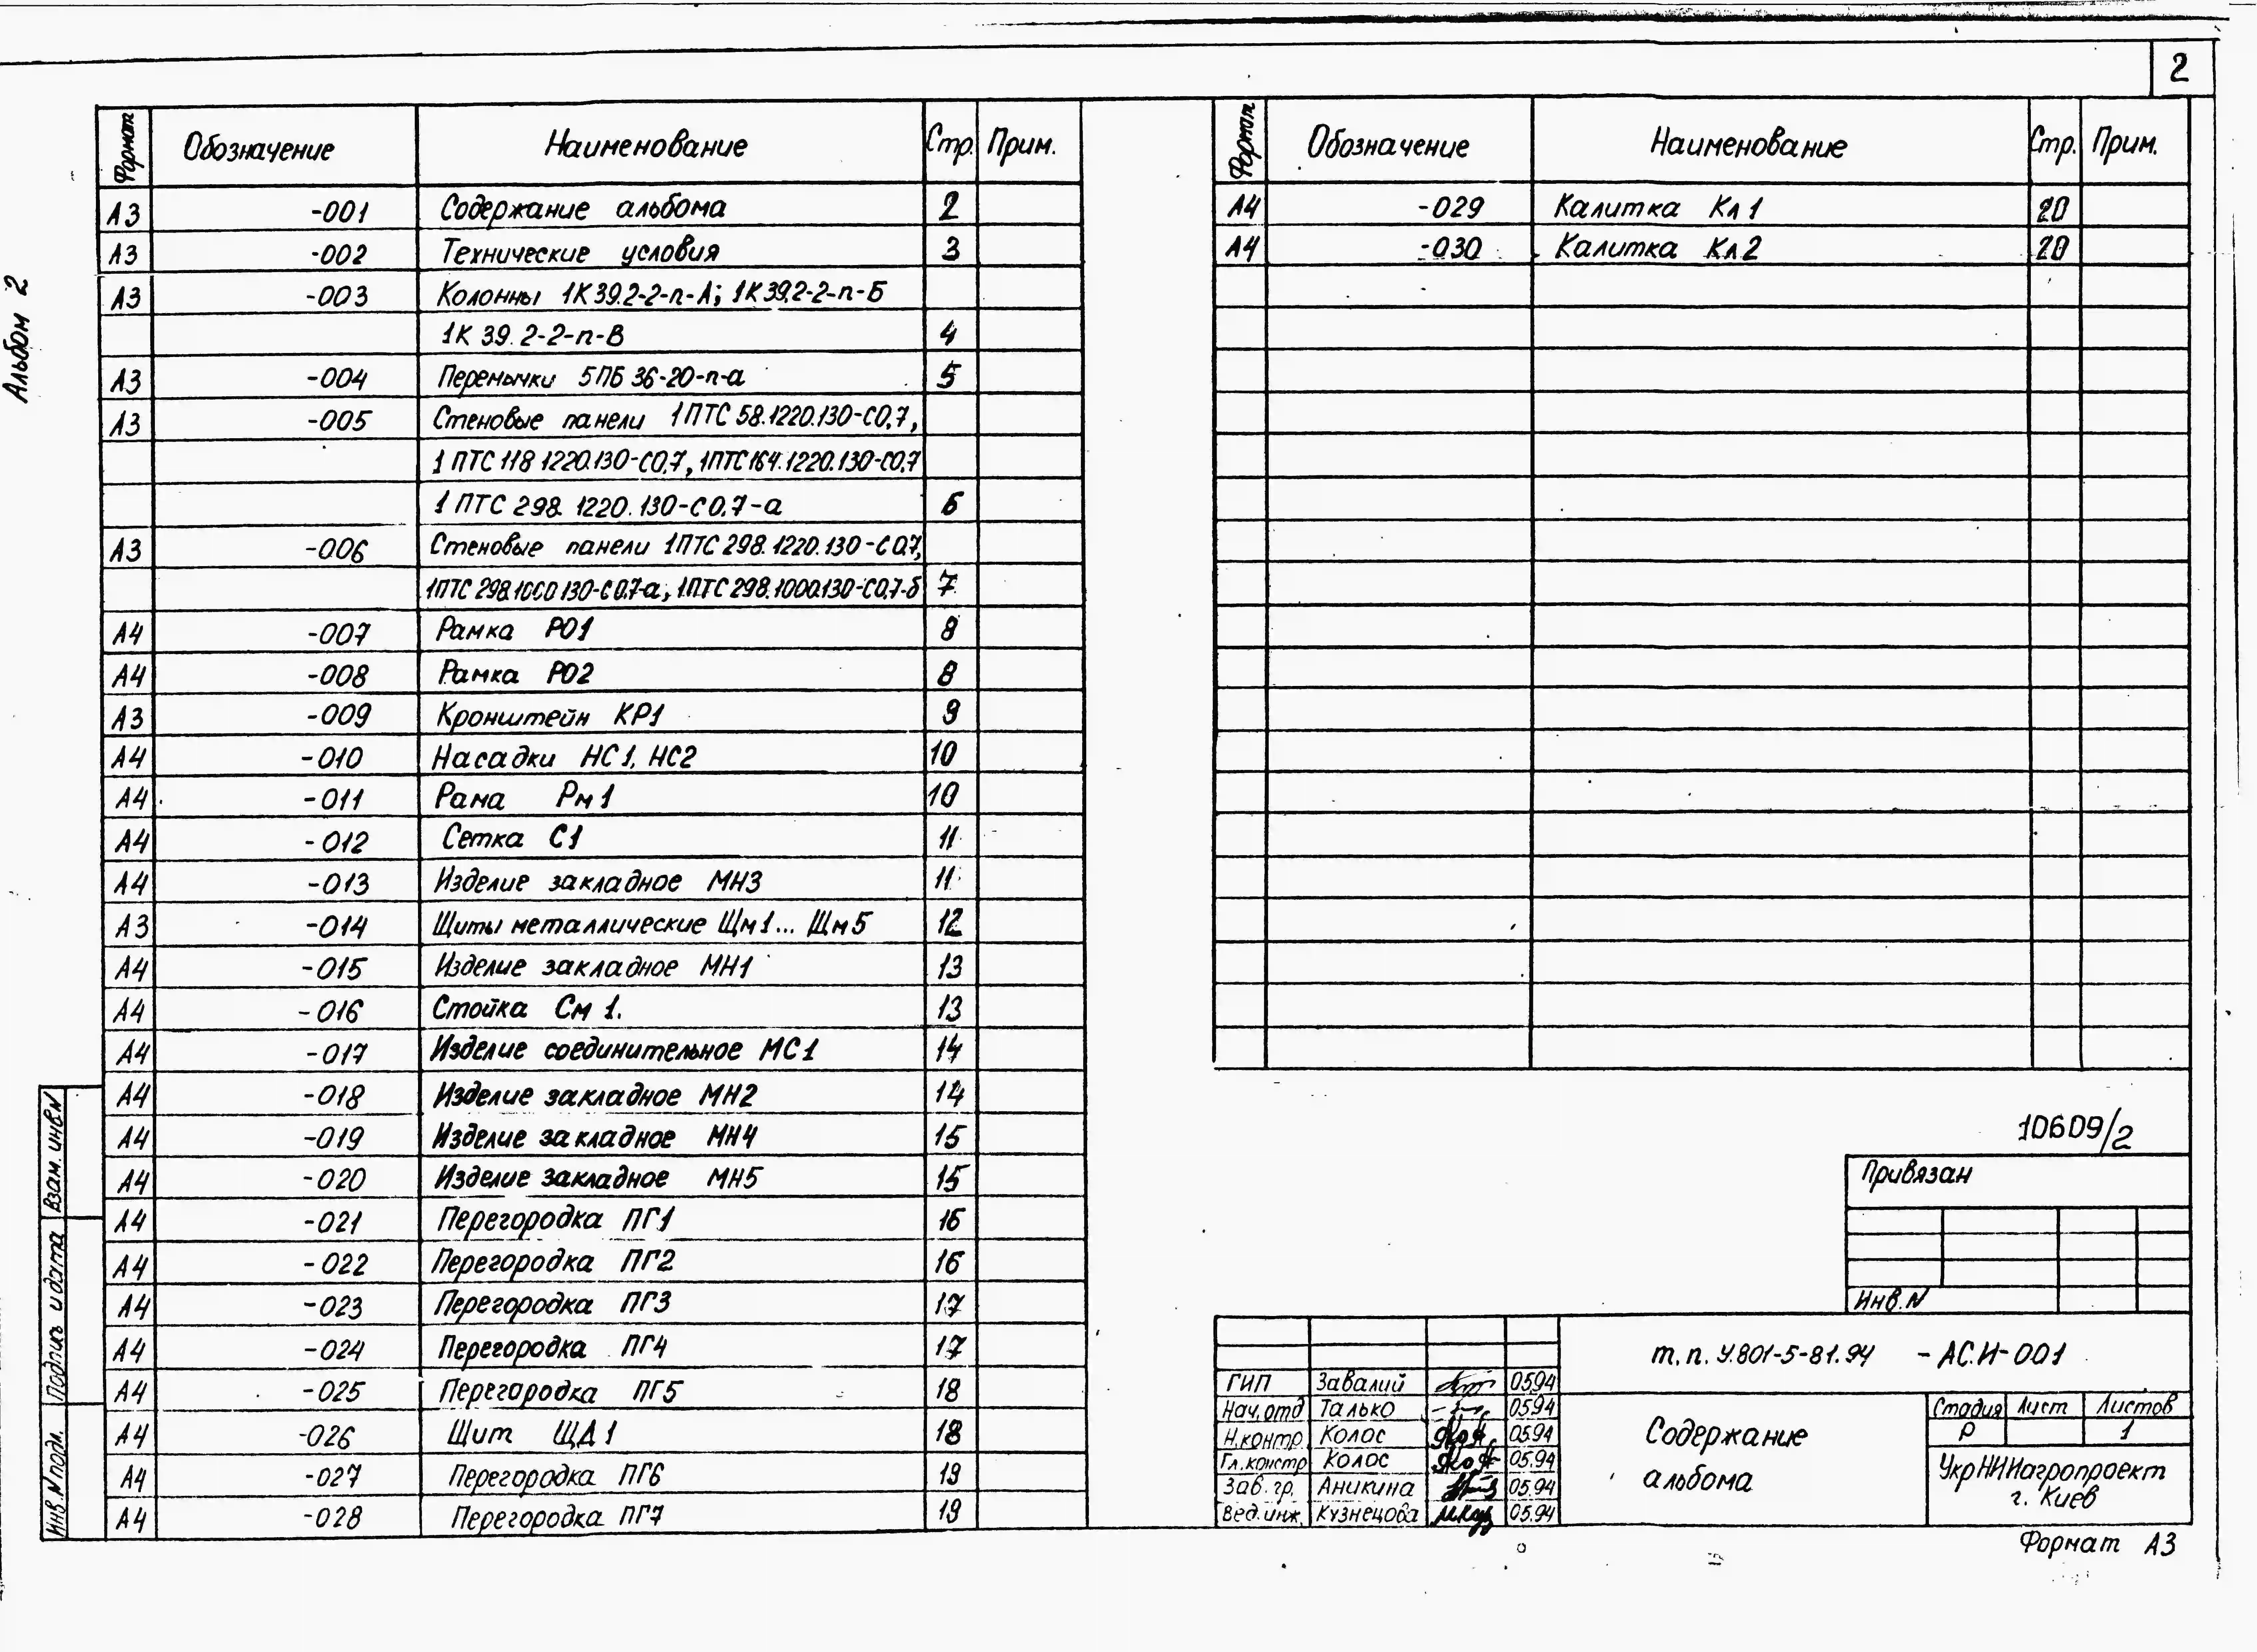 2
Альбом 2
Формат Обозначение Наименование Стр. Прим.
А3 -001 Содержание альбома 2
А3 -002 Технические условия 3
А3 -003 Колонны 1К39.2-2-п-А; 1К39.2-2-п-Б
1К 39.2-2-п-В 4
А3 -004 Перемычки 5ПБ 36-20-п-а 5
А3 -005 Стеновые панели 1ПТС 58.1220.130-С0,7,
1 ПТС 118 1220.130-С0,7, 1ПТС 164.1220.130-С0,7
1 ПТС 298. 1220. 130-С0,7-а 6
А3 -006 Стеновые панели 1ПТС 298. 1220. 130-С0,7,
1ПТС 298.1000 130-С0,7-а; 1ПТС 298.1000.130-С0,7-б 7
А4 -007 Рамка РО1 8
А4 -008 Рамка РО2 8
А3 -009 Кронштейн КР1 9
А4 -010 Насадки НС1, НС2 10
А4 -011 Рама Рм1 10
А4 -012 Сетка С1 11
А4 -013 Изделие закладное МН3 11
А3 -014 Щиты металлические Щм1... Щм5 12
А4 -015 Изделие закладное МН1 13
А4 -016 Стойка См 1. 13
А4 -017 Изделие соединительное МС1 14
А4 -018 Изделие закладное МН2 14
А4 -019 Изделие закладное МН4 15
А4 -020 Изделие закладное МН5 15
А4 -021 Перегородка ПГ1 16
А4 -022 Перегородка ПГ2 16
А4 -023 Перегородка ПГ3 17
А4 -024 Перегородка ПГ4 17
А4 -025 Перегородка ПГ5 18
А4 -026 Щит ЩД1 18
А4 -027 Перегородка ПГ6 19
А4 -028 Перегородка ПГ7 19
Взам. инв.N
Подпись и дата
Инв.N подл.
Формат Обозначение Наименование Стр. Прим.
А4 -029 Калитка Кл1 20
А4 -030 Калитка Кл2 20
10609/2
Привязан
Инв.N
т.п. У.801-5-81.94 -АС.И-001
ГИП Завалий 05.94
Нач.отд Талько 05.94
Н.контр. Колос 05.94
Гл.констр Колос 05.94
Зав.гр. Аникина 05.94
Вед.инж. Кузнецова 05.94
Содержание
альбома
Стадия Лист Листов
Р 1
УкрНИИагропроект
г. Киев
Формат А3